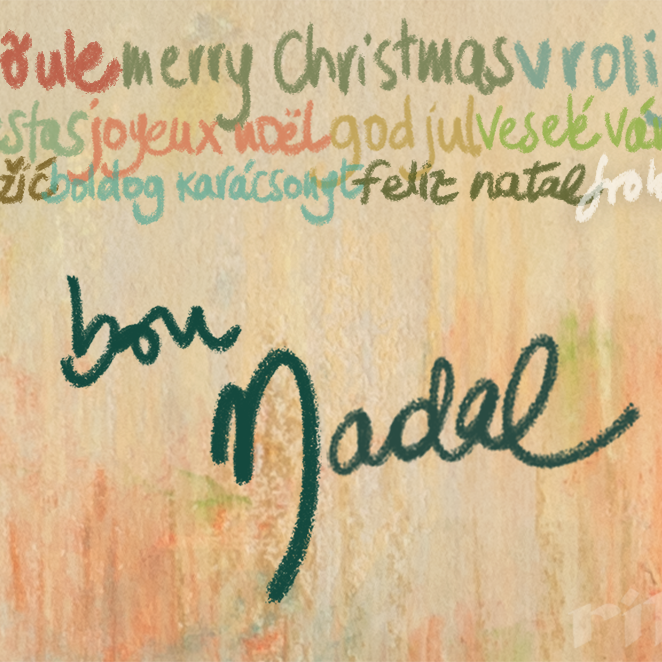 merry Christmas vroli
joyeux noël god jul veselé
boldog karácsonyt feliz natal
bon
Nadal